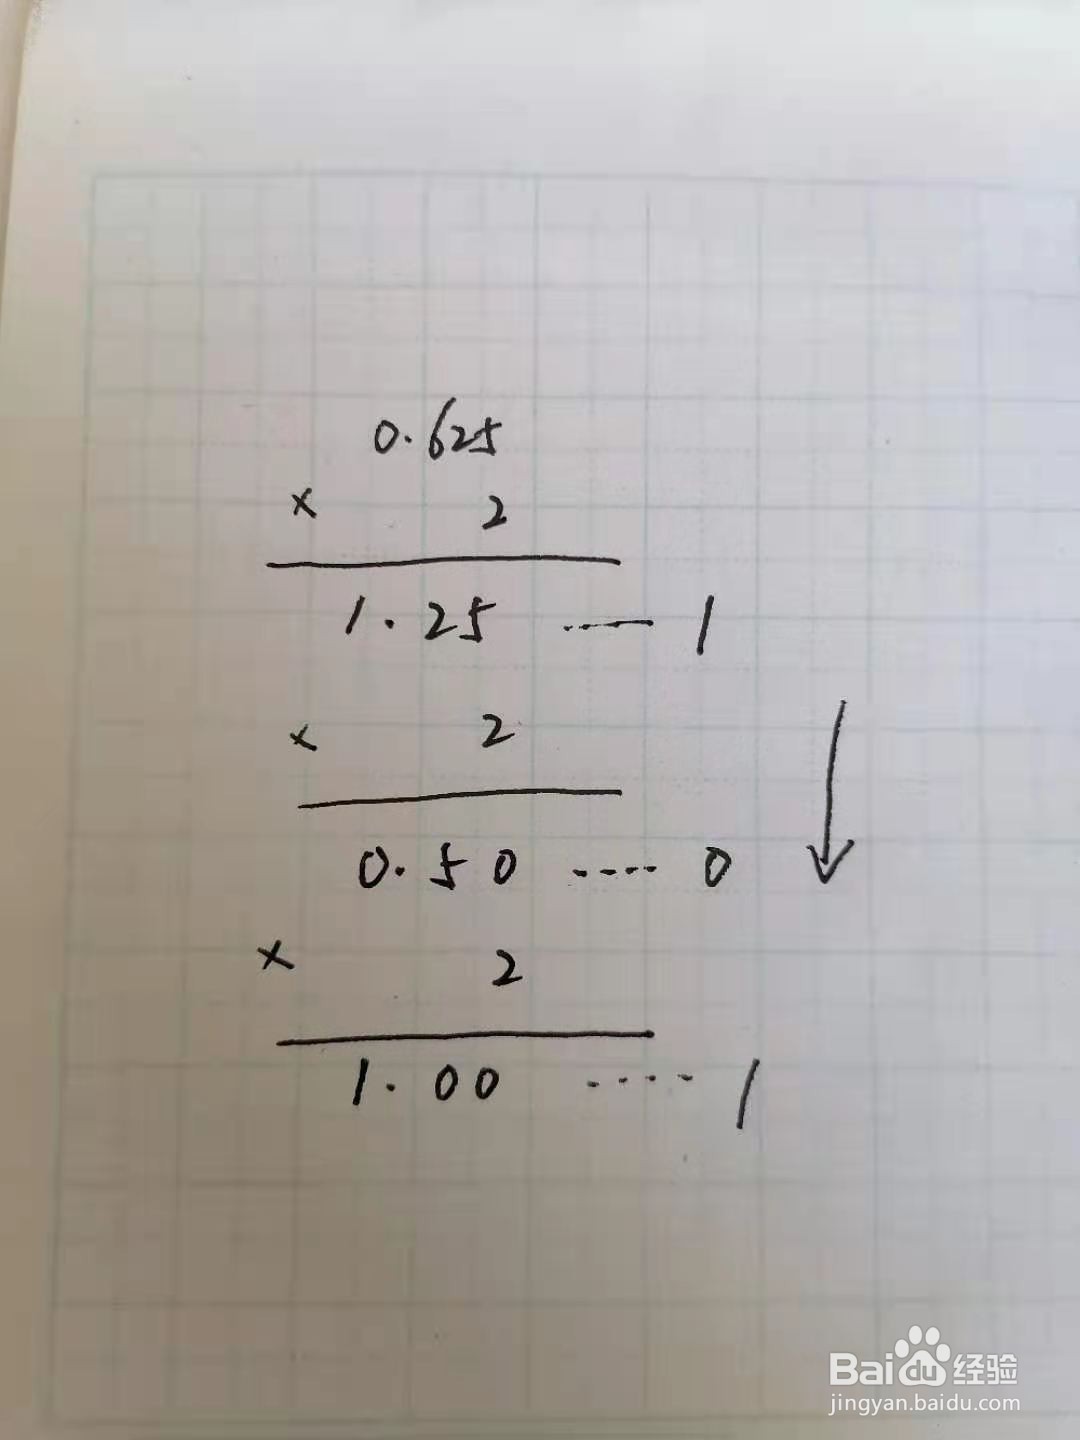 0.625
× 2
1.25 ...... 1
× 2
0.50 ..... 0
× 2
1.00 ..... 1
Bai du 经验
jingyan.baidu.com